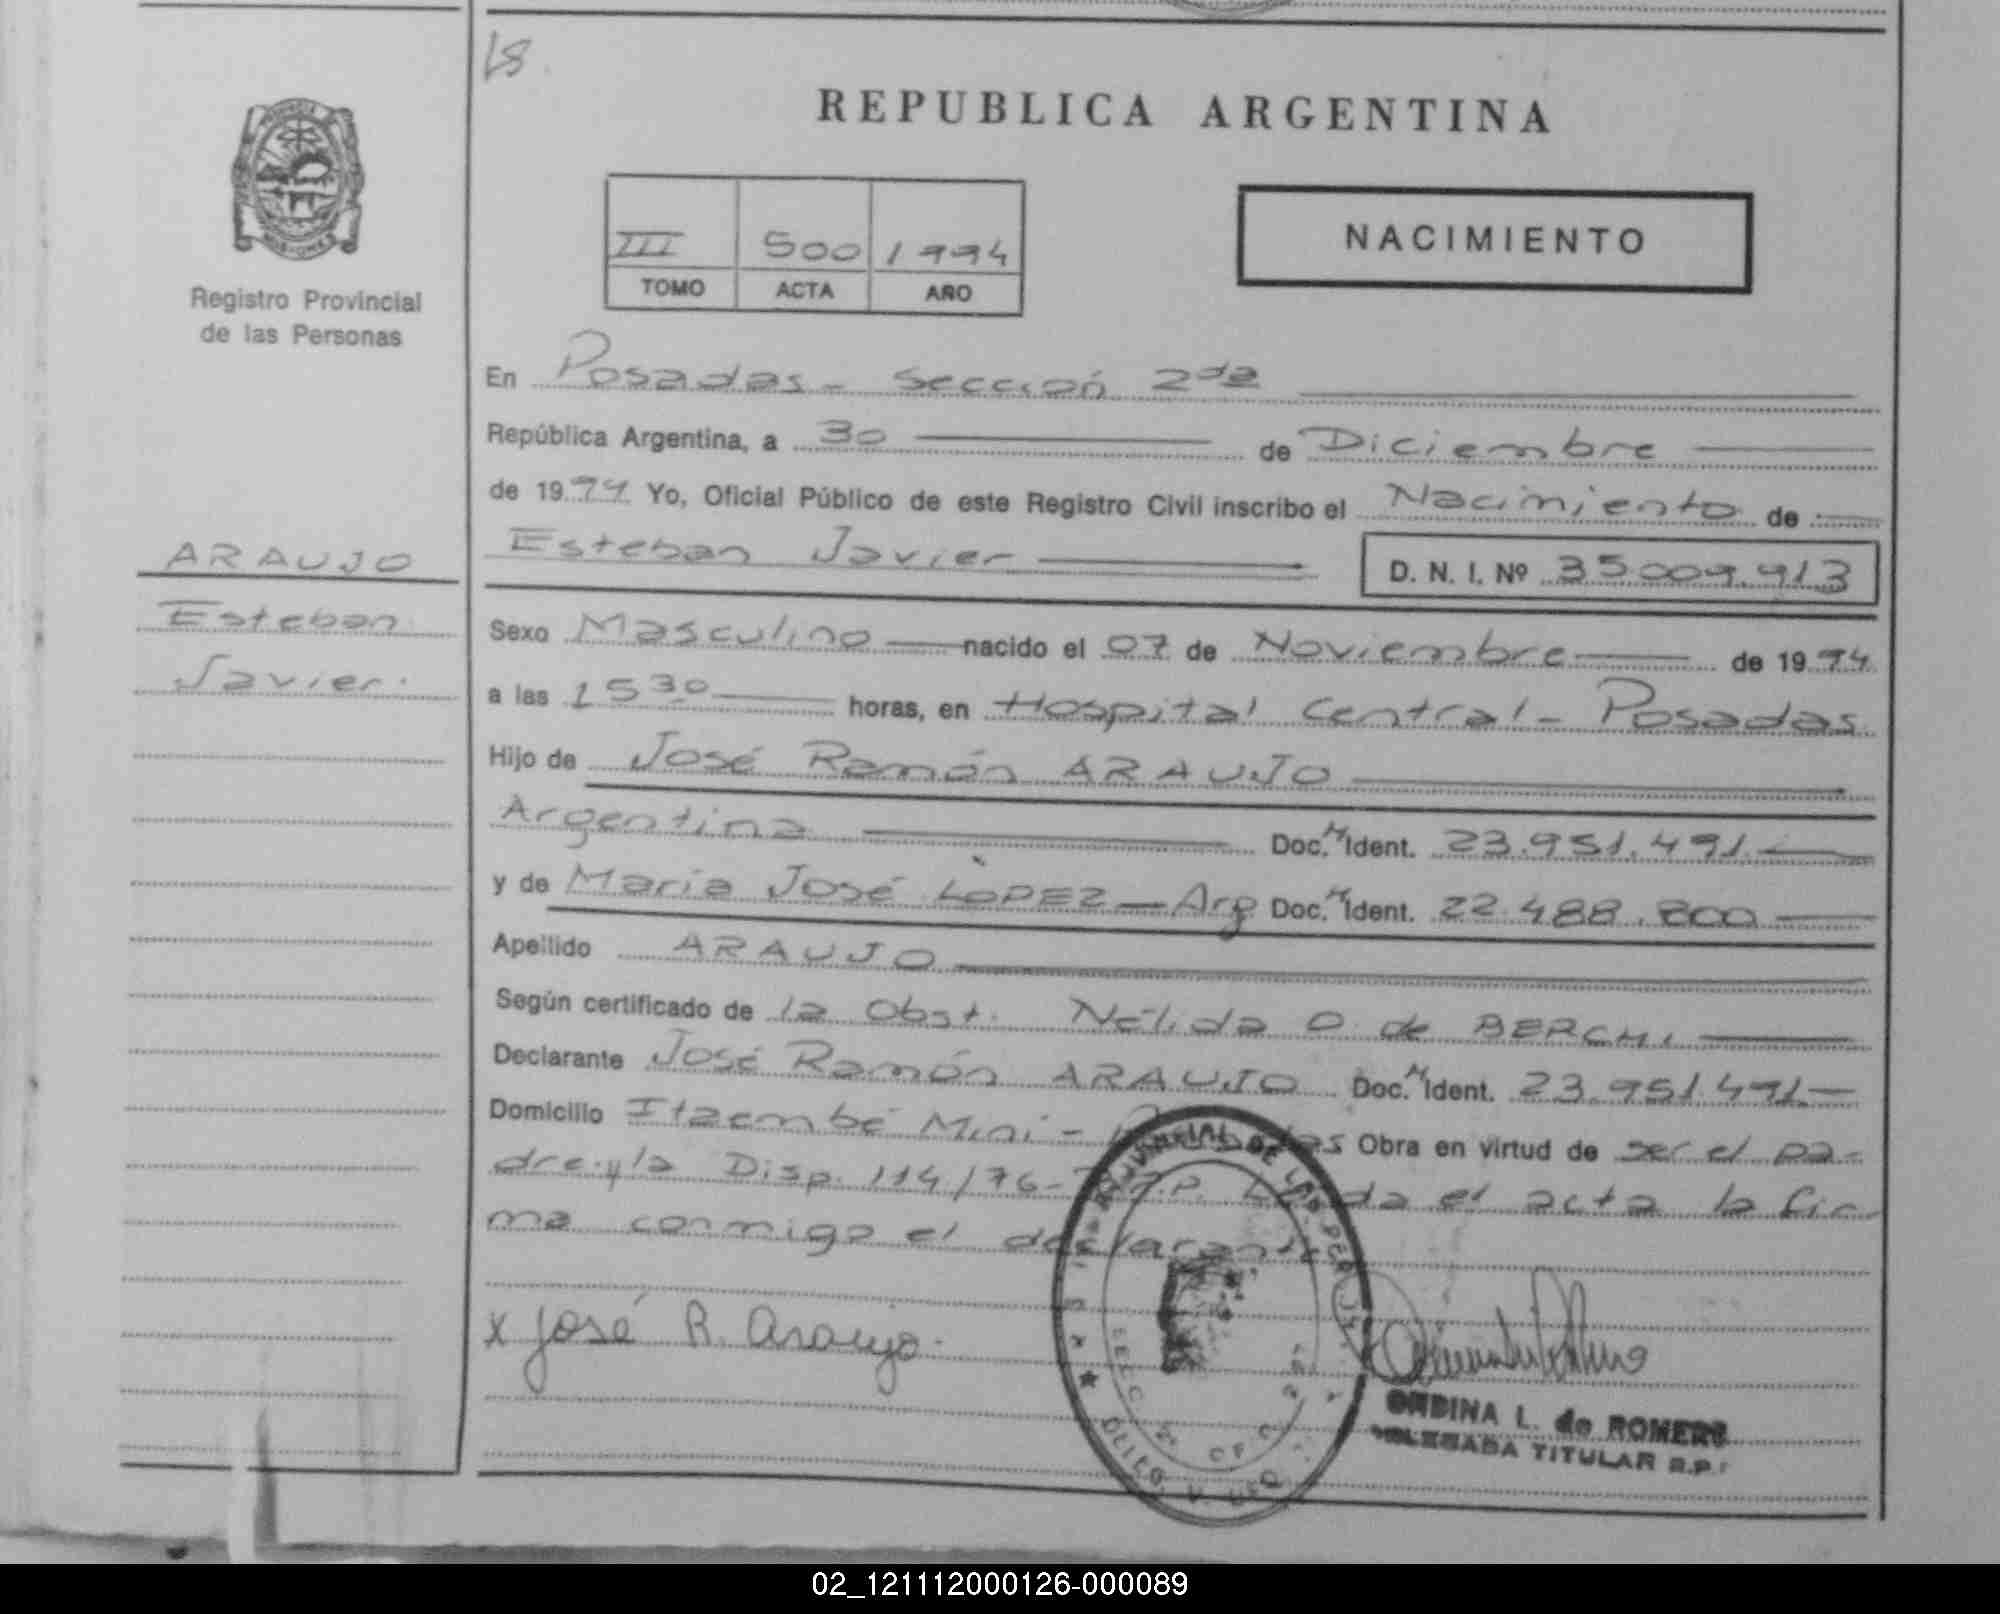 LS
REPUBLICA ARGENTINA
III 500 1994
TOMO ACTA AÑO
NACIMIENTO
Registro Provincial
de las Personas
En Posadas - Sección 2da
República Argentina, a 30 de Diciembre
de 1994 Yo, Oficial Público de este Registro Civil inscribo el Nacimiento de
Esteban Javier D. N. I. Nº 35.009.913
ARAUJO
Esteban
Javier.
Sexo Masculino nacido el 07 de Noviembre de 1994
a las 15 30 horas, en Hospital Central - Posadas
Hijo de José Ramón ARAUJO
Argentina Doc. N Ident. 23.951.491.
y de María José LOPEZ - Arg Doc. N Ident. 22.488.800
Apellido ARAUJO
Según certificado de la Obst. Nélida O. de BERCHI
Declarante José Ramón ARAUJO Doc. N Ident. 23.951.491.
Domicilio Itaembé Miní - Posadas Obra en virtud de ser el pa-
dre y la Disp. 114/76- Leída el acta la fir-
ma conmigo el declarante
x José R. Araujo.
L. de ROMERO
DELEGADA TITULAR R.P.
02_121112000126-000089